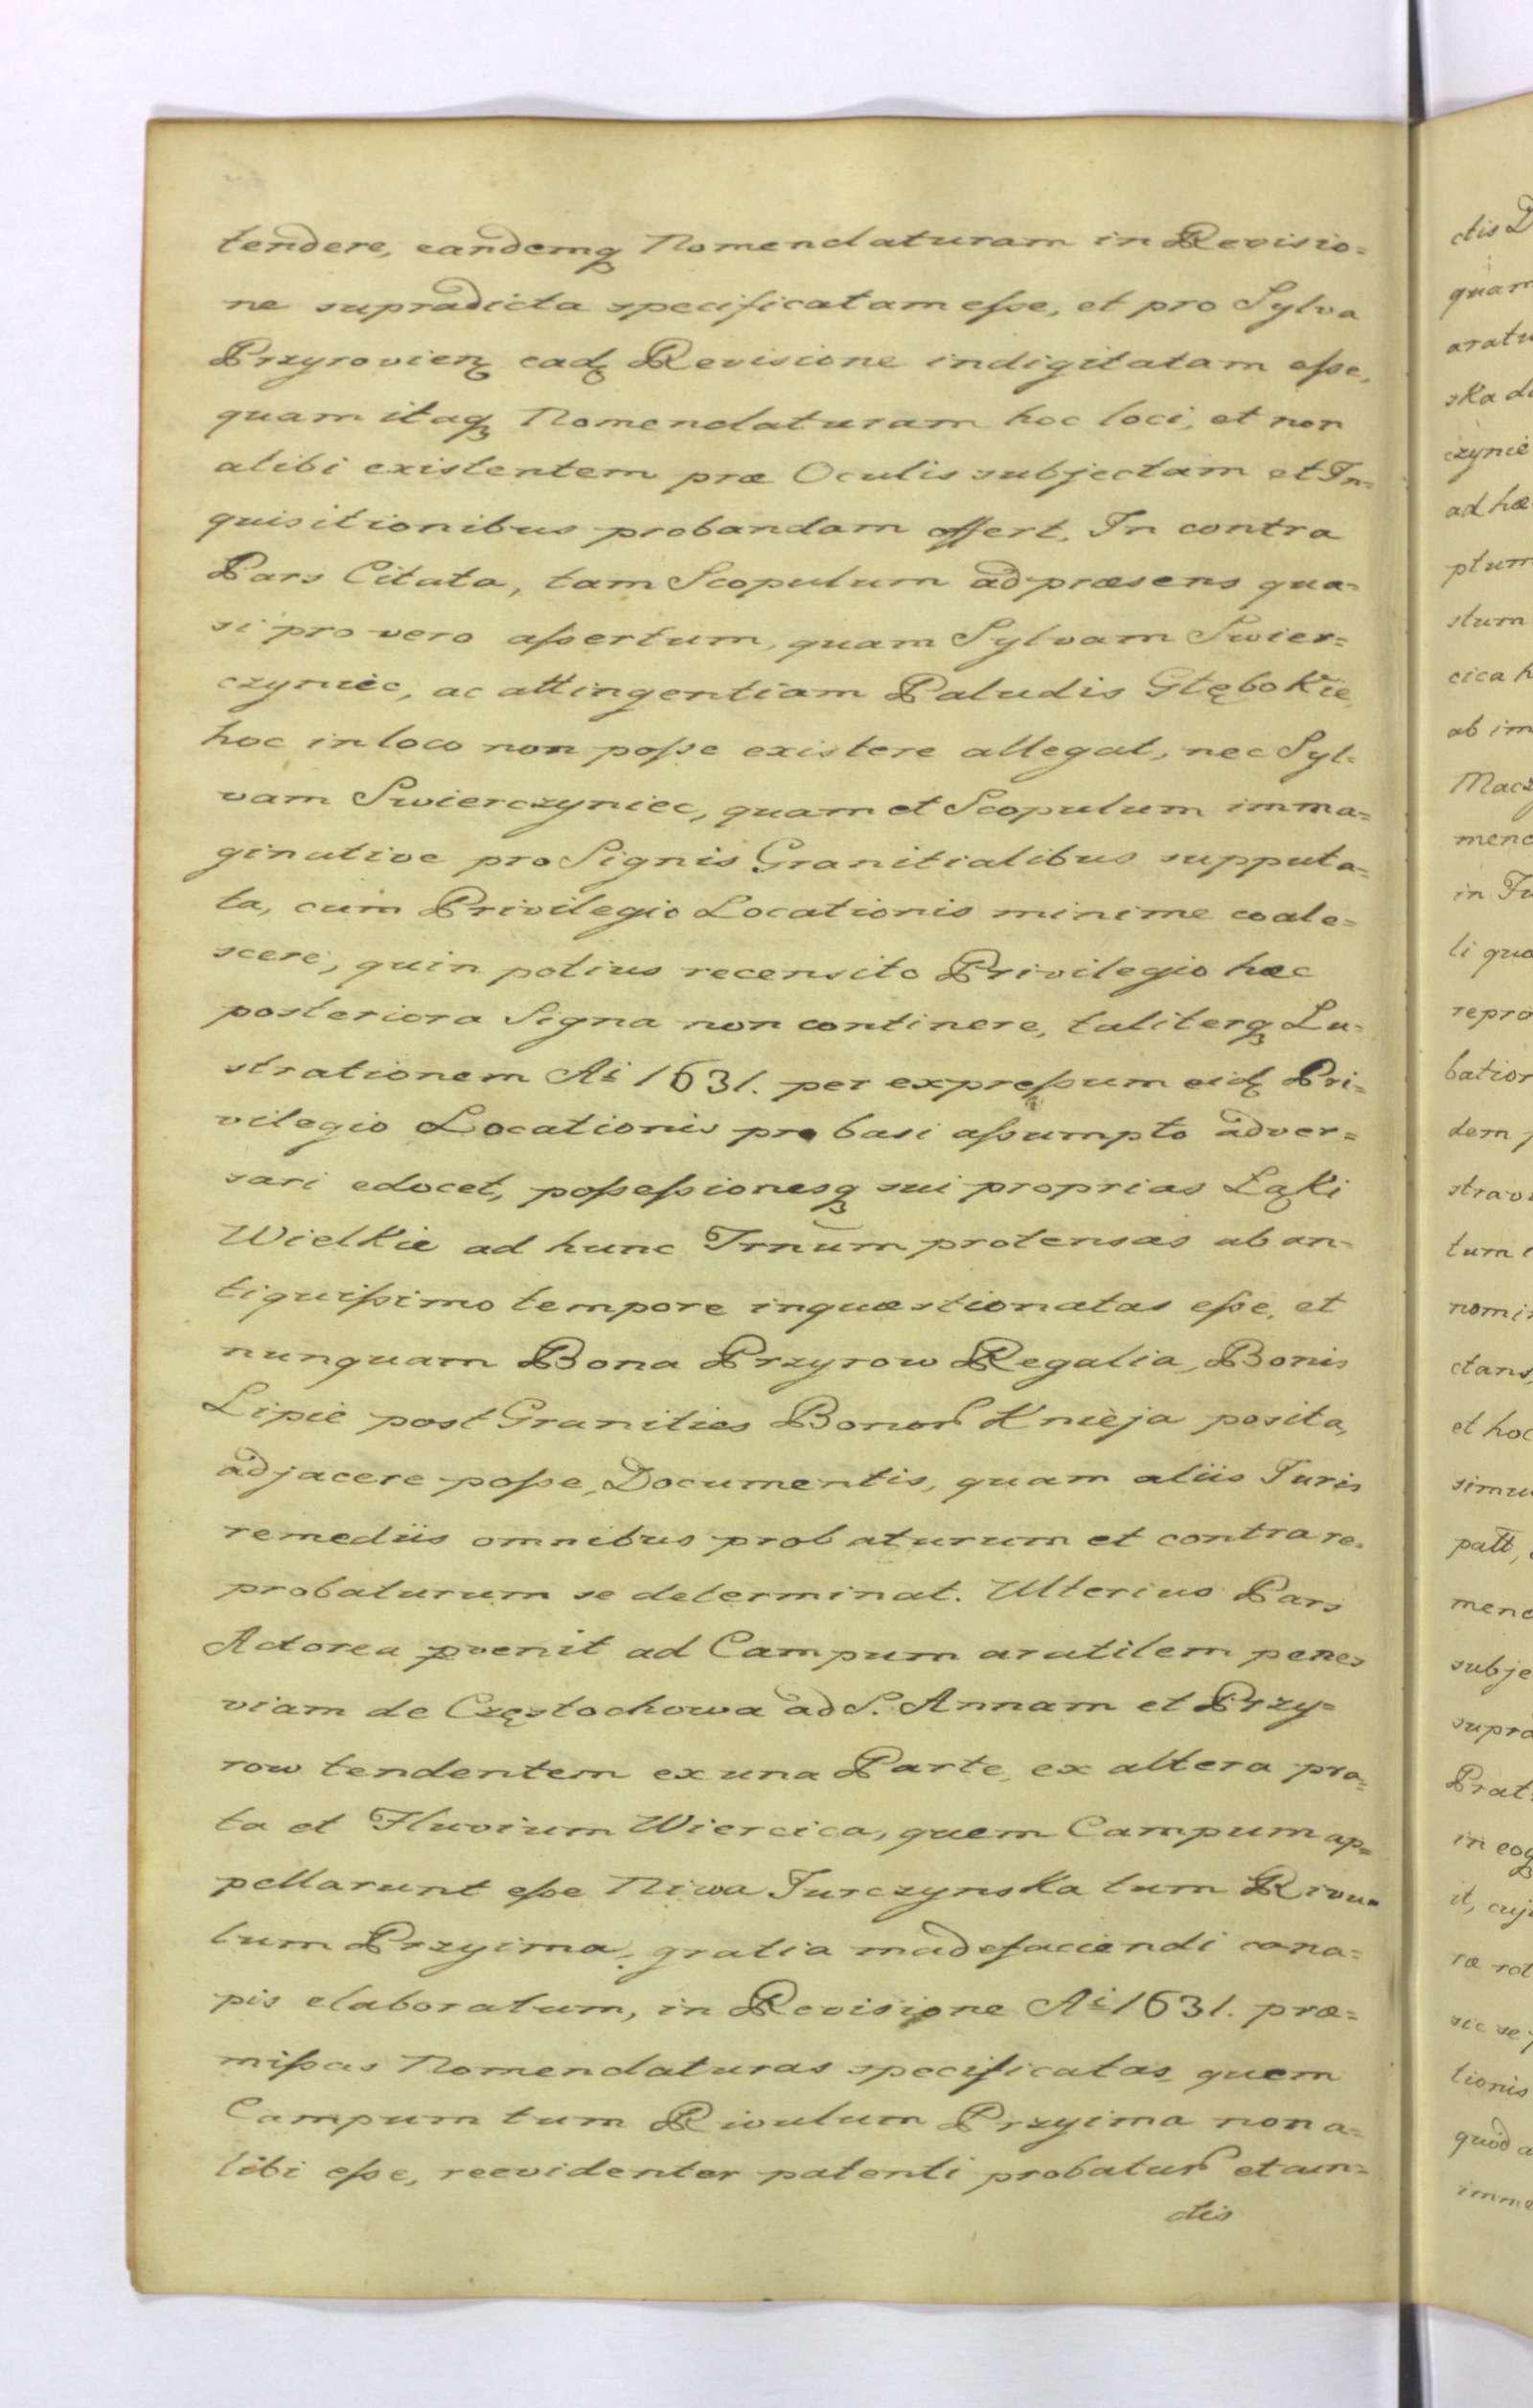 tendere, eandemq Nomenclaturam in Revisio=
ne supradicta specificatam eſse, et pro Sylva
Przyrovien eadq Revisione indigitatam eſse,
quam itaq Nomenclaturam hoc loci, et non
alibi existentem præ Oculis subjectam et In=
quisitionibus probandam offert. In contra
Pars Citata, tam Scopulum ad præsens qua=
si pro vero aſsertum, quam Sylvam Swier=
czyniec, ac attingentiam Paludis Głębokie
hoc in loco non poſse existere allegat, nec Syl=
vam Swierczyniec, quam et Scopulum imma=
ginative pro Signis Granitialibus supputa=
ta, cum Privilegio Locationis minime coale=
scere, quin potius recensito Privilegio hæc
posteriora Signa non continere, taliterq Lu=
strationem Ai 1631. per expreſsum eidq Pri=
vilegio Locationis pro basi aſsumpto adver=
sari edocet, poſseſsionesq sui proprias Łąki
Wielkie ad hunc Trnum protensas ab an=
tiquiſsimo tempore inquæstionatas eſse, et
nunquam Bona Przyrow Regalia, Bonis
Lipie post Granities Bonor Knieja posita,
adjacere poſse, Documentis, quam aliis Juris
remediis omnibus probaturum et contra re=
probaturum se determinat. Ulterius Pars
Actorea pvenit ad Campum aratilem penes
viam de Częstochowa ad S. Annam et Przy=
row tendentem ex una Parte, ex altera pra=
ta et Fluvium Wiercica, quem Campum ap=
pellarunt eſse Niwa Jurczynska tum Rivu=
lum Przyima, gratia madefaciendi cana=
pis elaboratum, in Revisione Ai 1631. præ=
miſsas Nomenclaturas specificatas, quem
Campum tum Rivulum Przyima non a=
libi eſse, reevidenter patenti probatur et aun=
ctis
ctis D
quam
aratu
ska d
czynie
ad hæ
ptum
stum
cica h
ab im
Macz
menc
in Fu
li qua
repro
bation
dem
stravi
tum
nomi
ctans,
et hoc
simu
patt,
menc
subje
supra
Prat
in eoq
it, cuj
ræ rot
sic se
tionis
quod a
imme